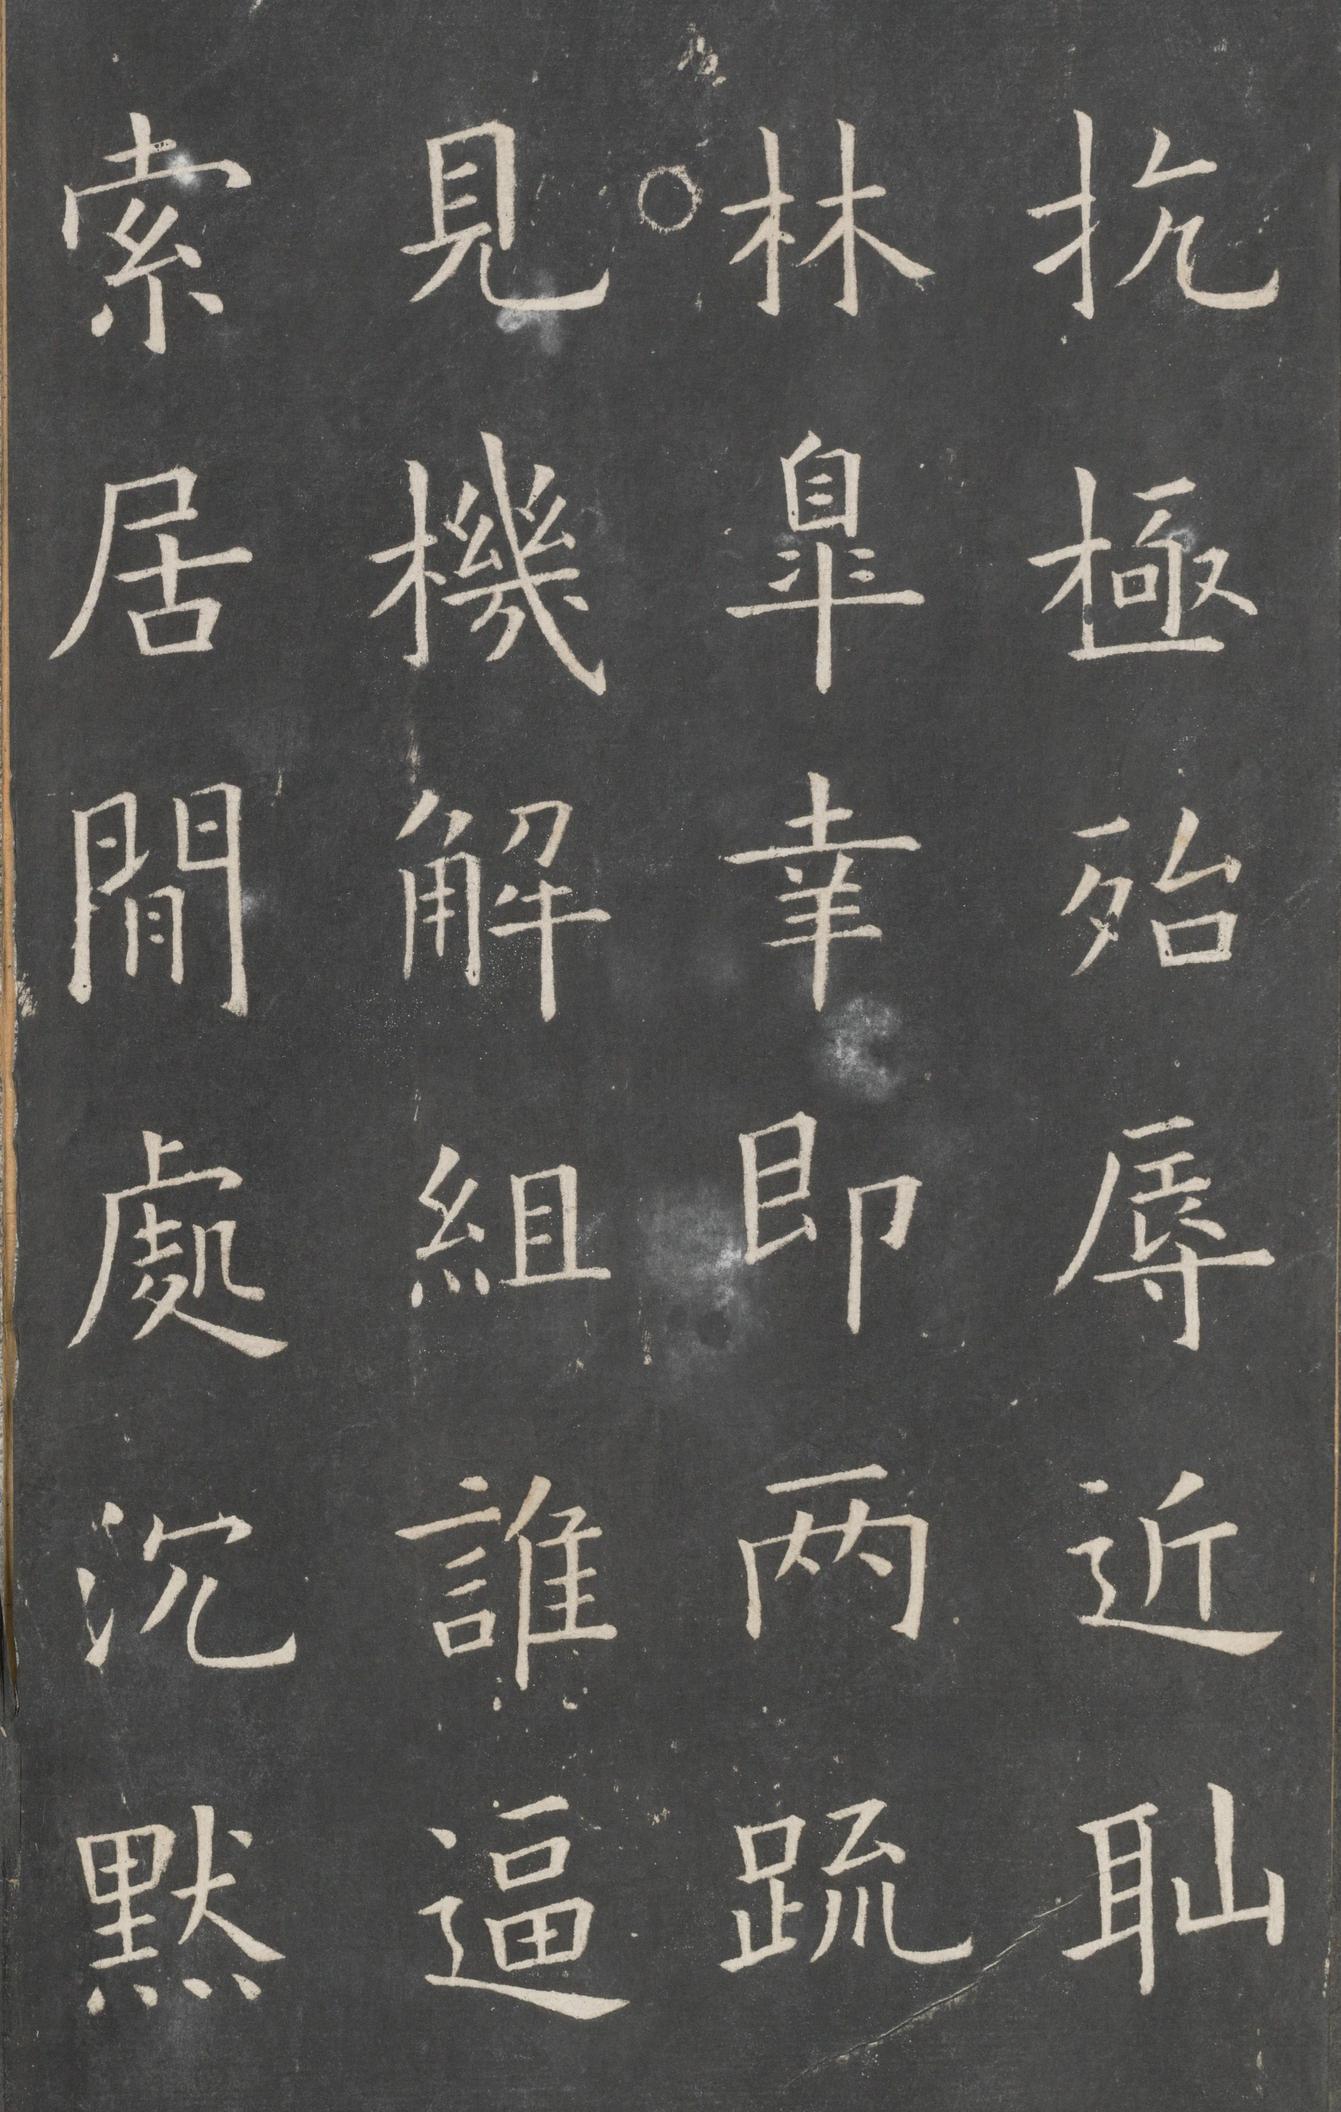 抗極殆辱近耻
林皋幸即两疏
見機解組誰逼
索居閒處沉默